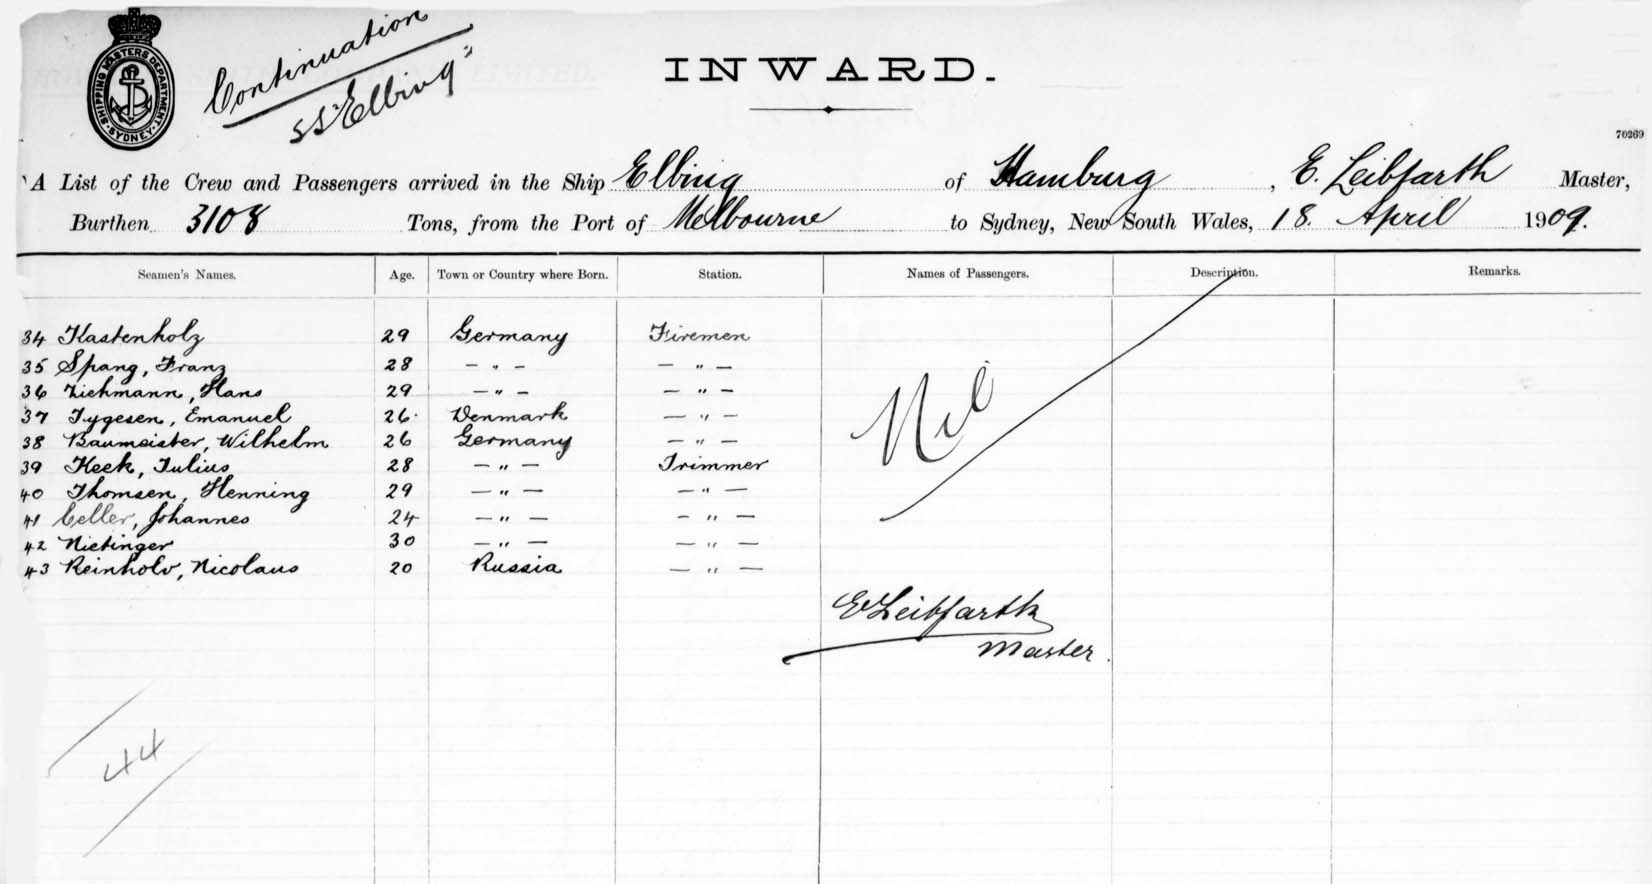 Continuation
SS "Elbing"
SHIPPING MASTERS DEPARTMENT. SYDNEY.
INWARD.
70269
A List of the Crew and Passengers arrived in the Ship Elbing of Hamburg, E. Leibfarth Master,
Burthen 3108 Tons, from the Port of Melbourne to Sydney, New South Wales, 18. April 1909.
Seamen's Names. Age. Town or Country where Born. Station. Names of Passengers. Description. Remarks.
34 Kastenholz 29 Germany Firemen
35 Spang, Franz 28 - " - - " -
36 Ziehmann, Hans 29 - " - - " -
37 Tygesen, Emanuel 26 Denmark - " -
38 Baumeister, Wilhelm 26 Germany - " -
39 Keek, Julius 28 - " - Trimmer
40 Thomsen, Henning 29 - " - - " -
41 Celler, Johannes 24 - " - - " -
42 Nietinger 30 - " - - " -
43 Reinholv, Nicolaus 20 Russia - " -
Nil
E Leibfarth
Master.
44